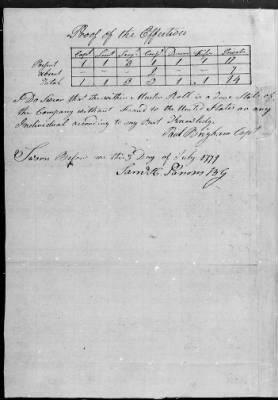 Proof of the Effectives
Capt Lieut Sergt Corpl Drumr Fifer Privates
Present 1 1 3 1 1 11
Absent
Total 1 1 3 3 1 1 14
I Do Swear that the within Muster Roll is a True State of
the Company without Fraud to the United States or any
Individual according to my Best Knowledge
Paul Brigham Capt
Sworn Before me this 3d Day of July 1779
Saml H. Parsons B G